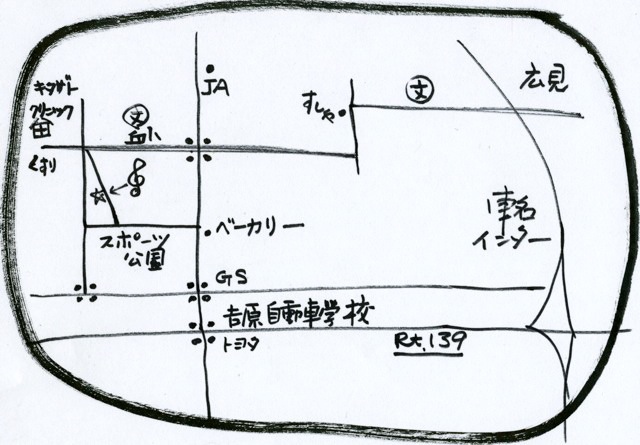 キタザト
クリニック
JA
すしや
文
広見
文
丘小
くすり
ベーカリー
東名
インター
スポーツ
公園
GS
吉原自動車学校
トヨタ
Rt.139